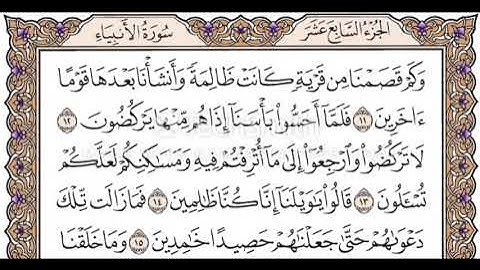 الجزء السابع عشر سورة الأنبياء
وَكَمْ قَصَمْنَا مِن قَرْيَةٍ كَانَتْ ظَالِمَةً وَأَنشَأْنَا بَعْدَهَا قَوْمًا
ءَاخَرِينَ ١١ فَلَمَّآ أَحَسُّوا۟ بَأْسَنَآ إِذَا هُم مِّنْهَا يَرْكُضُونَ ١٢
لَا تَرْكُضُوا۟ وَٱرْجِعُوٓا۟ إِلَىٰ مَآ أُتْرِفْتُمْ فِيهِ وَمَسَٰكِنِكُمْ لَعَلَّكُمْ
تُسْـَٔلُونَ ١٣ قَالُوا۟ يَٰوَيْلَنَآ إِنَّا كُنَّا ظَٰلِمِينَ ١٤ فَمَا زَالَت تِّلْكَ
دَعْوَىٰهُمْ حَتَّىٰ جَعَلْنَٰهُمْ حَصِيدًا خَٰمِدِينَ ١٥ وَمَا خَلَقْنَا